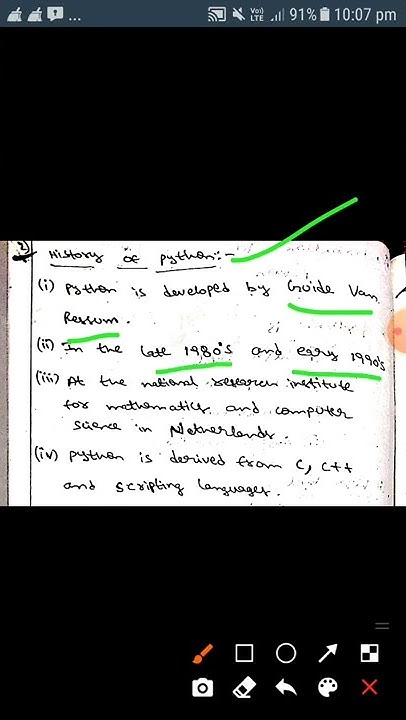 ... Vo) LTE 91% 10:07 pm
2) History of python:-
(i) python is developed by Guide Van
Ressum.
(ii) In the late 1980's and eary 1990's
(iii) At the national research institute
for mathematics and computer
science in Netherlands.
(iv) python is derived from C, C++
and scripting languages.